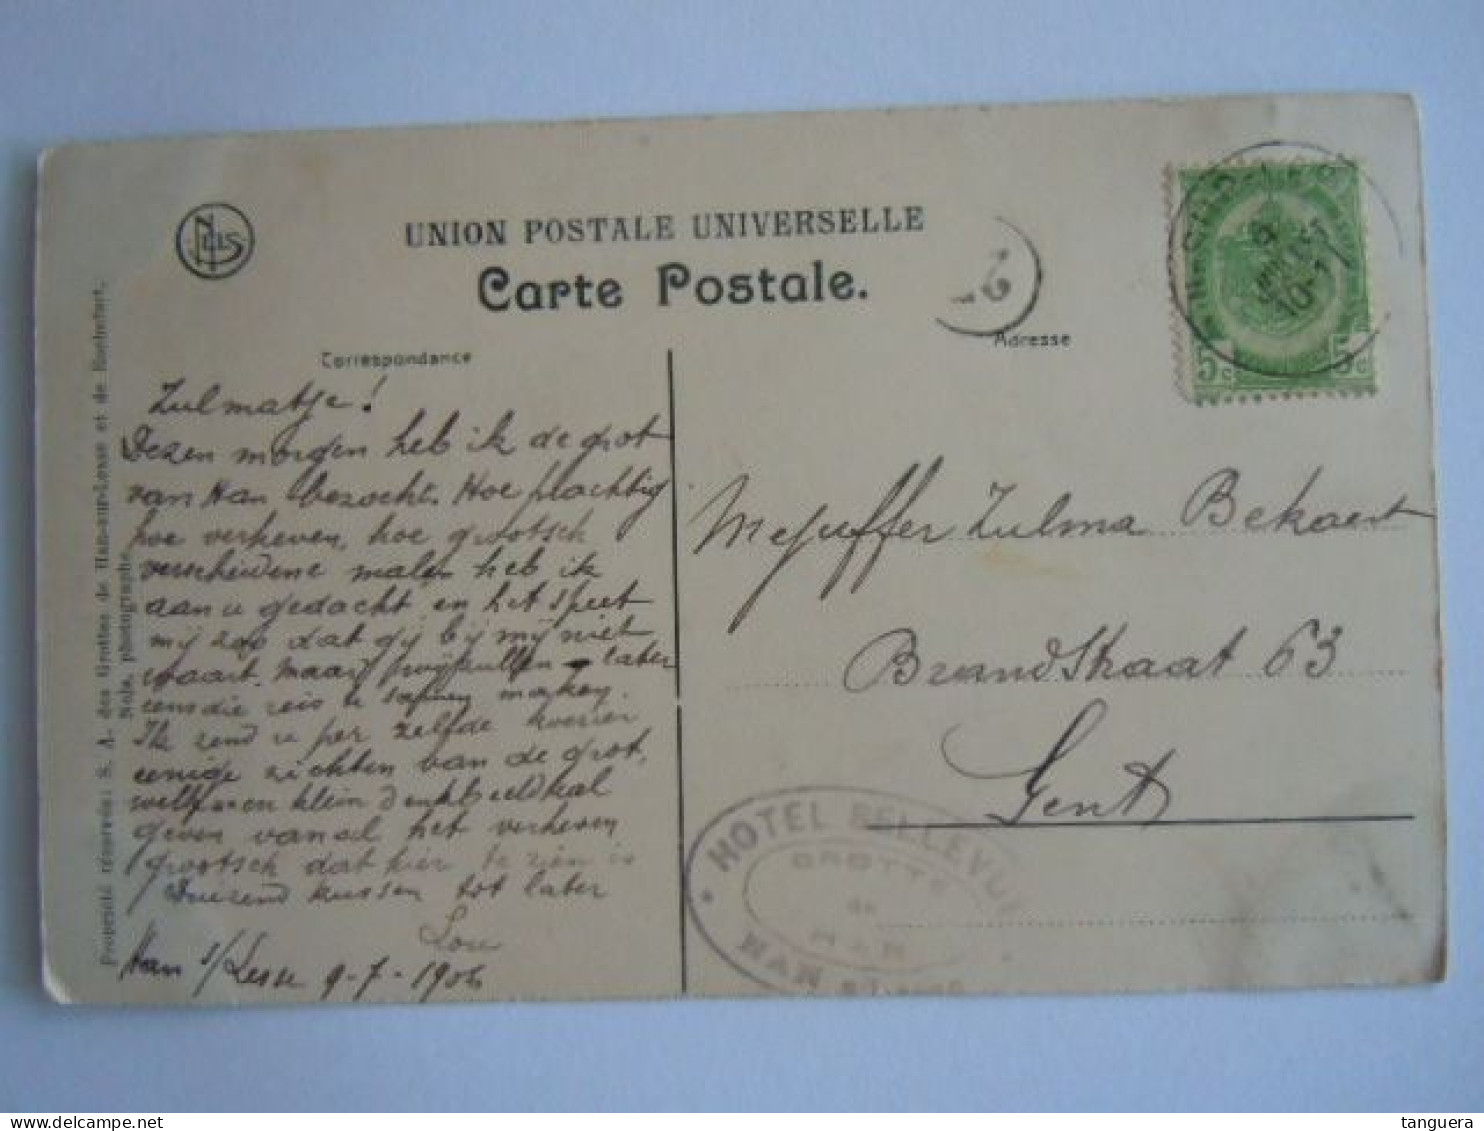 NELS
UNION POSTALE UNIVERSELLE
Carte Postale.
Correspondance
Adresse
5c 5c
Zulmatje!
Dezen morgen heb ik de grot
van Han bezocht. Hoe plachtig
hoe verheven, hoe grootsch
verscheidene malen heb ik
aan u gedacht en het speet
mij zoo dat gij bij mij niet
waart. Maar wij zullen later
eens die reis te samen maken.
Ik zend u per zelfde koerier
eenige zichten van de grot,
een klein denkbeeld zal
geven van al het verheven
grootsch dat hier te zien is
Duizend kussen tot later
Lou
Han s/Lesse 9-7-1906
Mejuffer Zulma Bekaert
Brandstraat 63
Gent
HOTEL BELLEVUE
GROTTE
de
HAN
HAN
Propriété réservée: S. A. des Grottes de Han-sur-Lesse et de Rochefort.
Nels, photographe.
tanguera